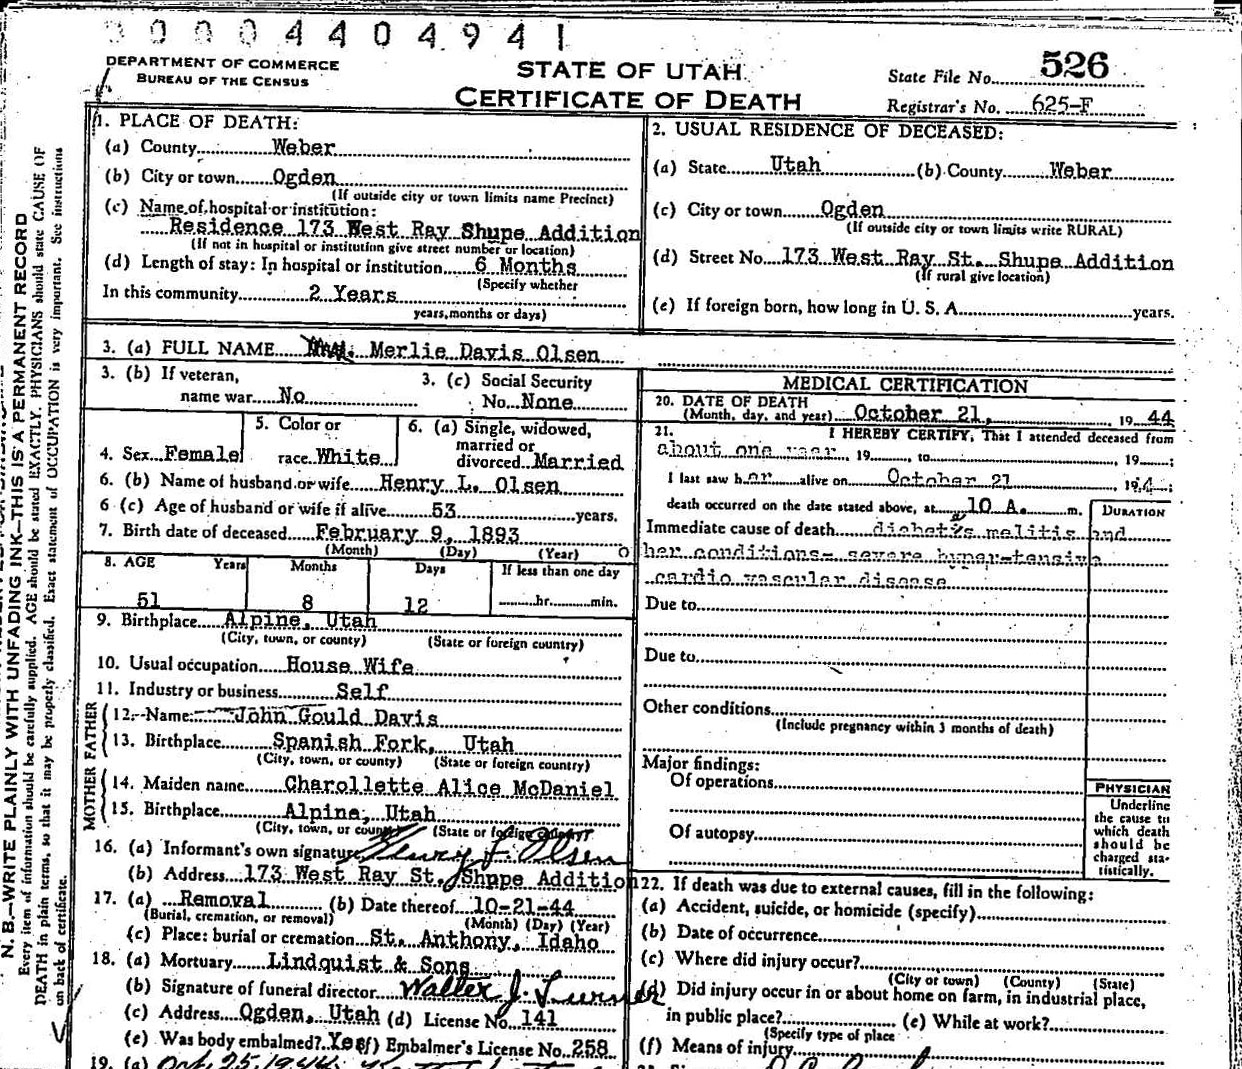 00004404941
DEPARTMENT OF COMMERCE
BUREAU OF THE CENSUS
STATE OF UTAH
CERTIFICATE OF DEATH
State File No. 526
Registrar's No. 625-F
N. B.—WRITE PLAINLY WITH UNFADING INK—THIS IS A PERMANENT RECORD
Every item of information should be carefully supplied. AGE should be stated EXACTLY. PHYSICIANS should state CAUSE OF
DEATH in plain terms, so that it may be properly classified. Exact statement of OCCUPATION is very important. See instructions
on back of certificate.
1. PLACE OF DEATH:
(a) County Weber
(b) City or town Ogden
(If outside city or town limits name Precinct)
(c) Name of hospital or institution:
Residence 173 West Ray Shupe Addition
(If not in hospital or institution give street number or location)
(d) Length of stay: In hospital or institution 6 Months
(Specify whether
In this community 2 Years
years, months or days)
2. USUAL RESIDENCE OF DECEASED:
(a) State Utah (b) County Weber
(c) City or town Ogden
(If outside city or town limits write RURAL)
(d) Street No. 173 West Ray St. Shupe Addition
(If rural give location)
(e) If foreign born, how long in U. S. A. years.
3. (a) FULL NAME Merlie Davis Olsen
3. (b) If veteran,
name war No
3. (c) Social Security
No. None
4. Sex Female
5. Color or
race White
6. (a) Single, widowed,
married or
divorced Married
6. (b) Name of husband or wife Henry L. Olsen
6 (c) Age of husband or wife if alive 53 years.
7. Birth date of deceased February 9, 1893
(Month) (Day) (Year)
8. AGE Years Months Days If less than one day
51 8 12 hr. min.
9. Birthplace Alpine, Utah
(City, town, or county) (State or foreign country)
10. Usual occupation House Wife
11. Industry or business Self
FATHER
12. Name John Gould Davis
13. Birthplace Spanish Fork, Utah
(City, town, or county) (State or foreign country)
MOTHER
14. Maiden name Charollette Alice McDaniel
15. Birthplace Alpine, Utah
(City, town, or county) (State or foreign country)
16. (a) Informant's own signature Henry L. Olsen
(b) Address 173 West Ray St. Shupe Addition
17. (a) Removal (b) Date thereof 10-21-44
(Burial, cremation, or removal) (Month) (Day) (Year)
(c) Place: burial or cremation St. Anthony, Idaho
18. (a) Mortuary Lindquist & Sons
(b) Signature of funeral director Walter J. Turner
(c) Address Ogden, Utah (d) License No. 141
(e) Was body embalmed? Yes (f) Embalmer's License No. 258
19. (a) Oct. 25, 1944
MEDICAL CERTIFICATION
20. DATE OF DEATH
(Month, day, and year) October 21, 19 44
21. I HEREBY CERTIFY, That I attended deceased from
about one year, 19 , to , 19 ;
I last saw her alive on October 21 194 ;
death occurred on the date stated above, at 10 A. m.
DURATION
Immediate cause of death diabetis melitis and
her conditions- severe hyper-tensive
cardio vascular disease
Due to
Due to
Other conditions
(Include pregnancy within 3 months of death)
Major findings:
Of operations
Of autopsy
PHYSICIAN
Underline
the cause to
which death
should be
charged sta-
tistically.
22. If death was due to external causes, fill in the following:
(a) Accident, suicide, or homicide (specify)
(b) Date of occurrence
(c) Where did injury occur?
(City or town) (County) (State)
(d) Did injury occur in or about home on farm, in industrial place,
in public place? (e) While at work?
(Specify type of place
(f) Means of injury